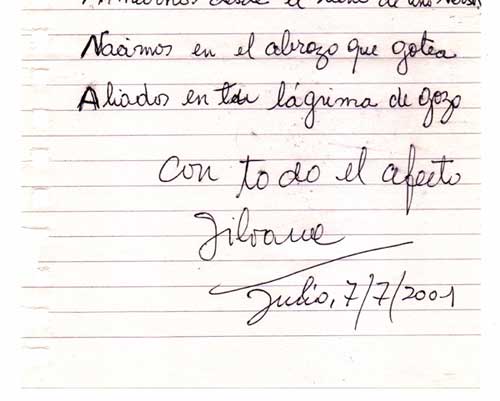 desde el de una
Nacimos en el abrazo que gotea
Aliados en tu lágrima de gozo
con todo el afecto
Silvana
Julio, 7/7/2001